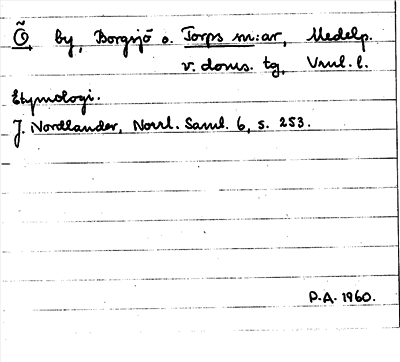 Õ by, Borgsjö o. Torps m:ar, Medelp.
v. doms. tg, Vnul. l.
Etymologi.
J. Nordlander, Norrl. Saml. 6, s. 253.
P.A. 1960.